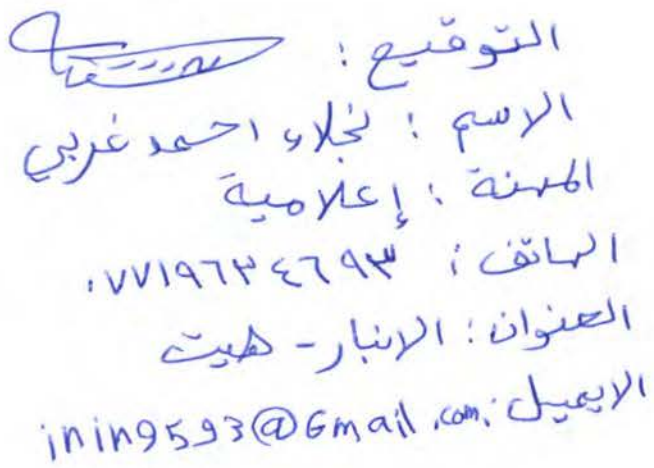 التوقيع :
الاسم : نجلاء احمد غربي
المهنة : إعلامية
الهاتف : ٠٧٧١٩٦٣٤٦٩٣
العنوان : الانبار - هيت
الايميل : inin9593@Gmail.com